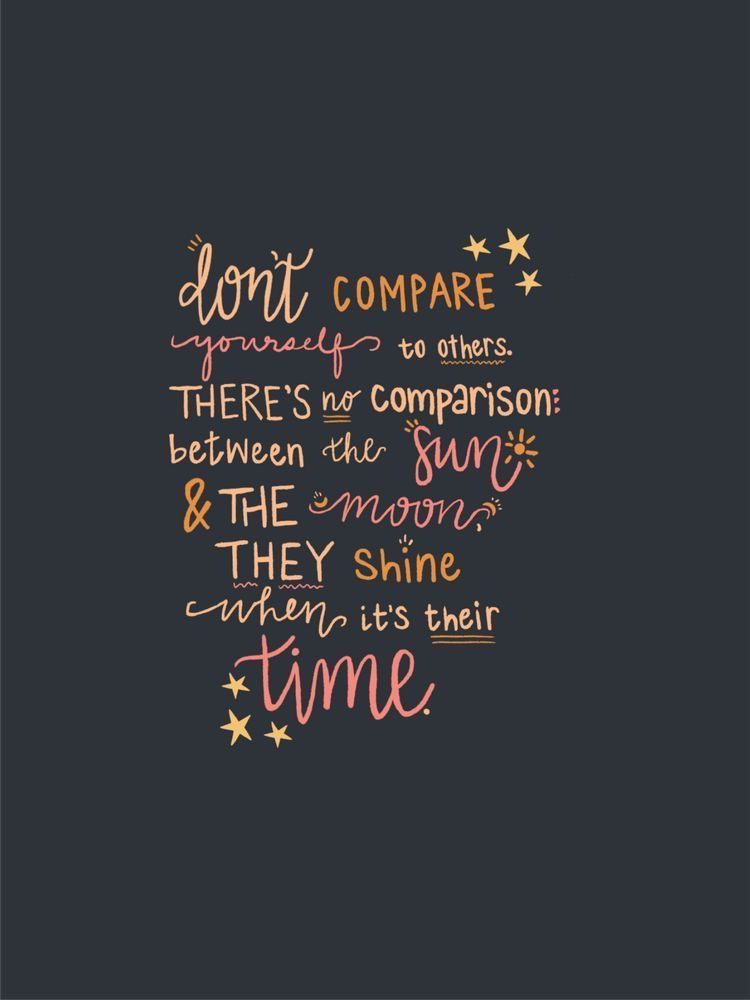 don't COMPARE
yourself to others.
THERE'S no comparison
between the sun
& THE moon,
THEY shine
when it's their
time.